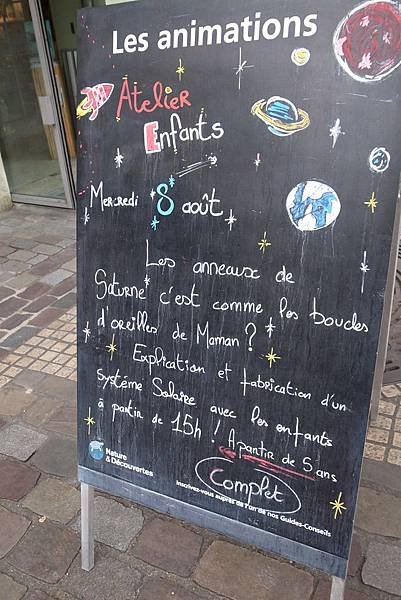 Les animations
Atelier
Enfants
Mercredi 8 août
Les anneaux de
Saturne c'est comme les boucles
d'oreilles de Maman ?
Explication et fabrication d'un
système Solaire avec les enfants
à partir de 15h ! A partir de 5 ans
Complet
Nature
& Découvertes
Inscrivez-vous auprès de l'un de nos Guides-Conseils